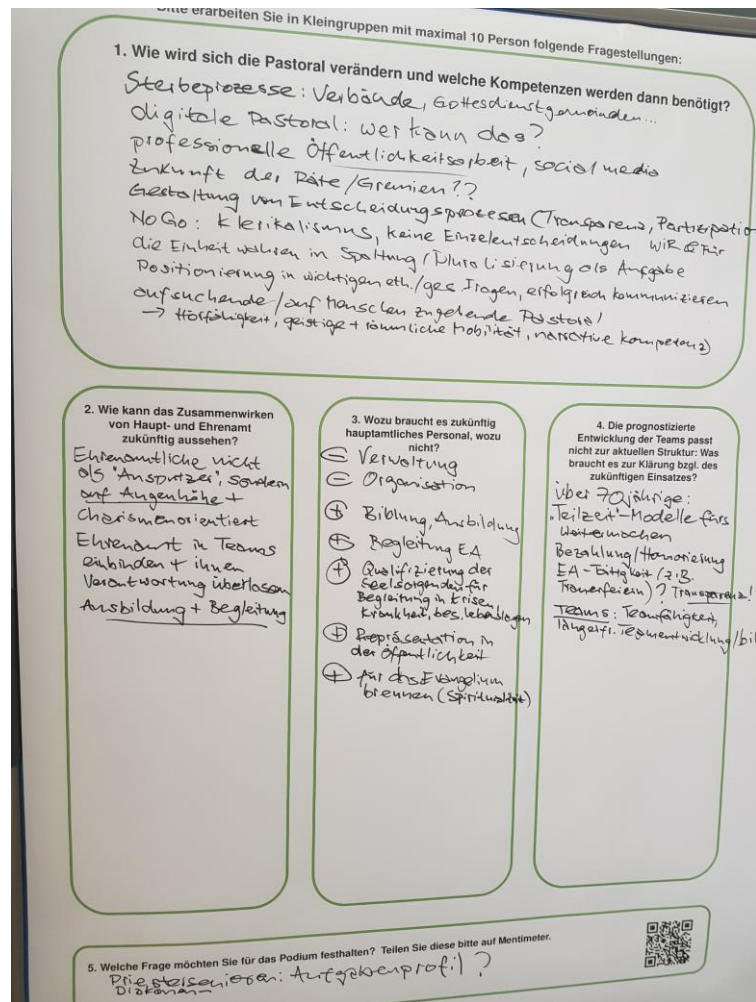 Bitte erarbeiten Sie in Kleingruppen mit maximal 10 Person folgende Fragestellungen:
1. Wie wird sich die Pastoral verändern und welche Kompetenzen werden dann benötigt?
Sterbeprozesse: Verbände, Gottesdienstgemeinden...
digitale Pastoral: wer kann das?
professionelle Öffentlichkeitsarbeit, social media
Zukunft der Räte/Gremien??
Gestaltung von Entscheidungsprozessen (Transparenz, Partizipatio
NoGo: Klerikalismus, keine Einzelentscheidungen WIR & Für
die Einheit wahren in Spaltung/Pluralisierung als Aufgabe
Positionierung in wichtigen eth./ges Fragen, erfolgreich kommunizieren
aufsuchende/auf Menschen zugehende Pastoral
→ Hörfähigkeit, geistige + räumliche Mobilität, narrative Kompetenz)
2. Wie kann das Zusammenwirken
von Haupt- und Ehrenamt
zukünftig aussehen?
Ehrenamtliche nicht
als "Ausputzer", sondern
auf Augenhöhe +
charismenorientiert
Ehrenamt in Teams
einbinden + ihnen
Verantwortung überlassen
Ausbildung + Begleitung
3. Wozu braucht es zukünftig
hauptamtliches Personal, wozu
nicht?
⊖ Verwaltung
⊖ Organisation
⊕ Bildung, Ausbildung
⊕ Begleitung EA
⊕ Qualifizierung der
Seelsorgenden für
Begleitung in Krisen
Krankheit, bes. Lebenslagen
⊕ Repräsentation in
der Öffentlichkeit
⊕ für das Evangelium
brennen (Spiritualität)
4. Die prognostizierte
Entwicklung der Teams passt
nicht zur aktuellen Struktur: Was
braucht es zur Klärung bzgl. des
zukünftigen Einsatzes?
über 70jährige:
"Teilzeit"-Modelle fürs
Weitermachen
Bezahlung/Honorierung
EA-Tätigkeit (z.B.
Trauerfeiern)? Transparenz!
Teams: Teamfähigkeit,
längerfr. Teamentwicklung/bil
5. Welche Frage möchten Sie für das Podium festhalten? Teilen Sie diese bitte auf Mentimeter.
Priestersenioren: Aufgabenprofil?
Diakonen